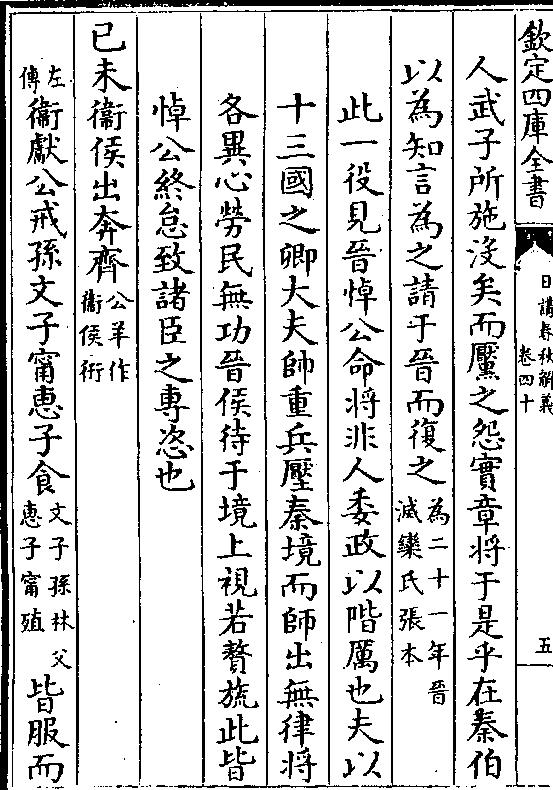 欽定四庫全書
日講春秋解義
卷四十
五
人武子所施沒矣而黶之怨實章將于是乎在秦伯
以為知言為之請于晉而復之為二十一年晉
滅欒氏張本
此一役見晉悼公命將非人委政以階厲也夫以
十三國之卿大夫帥重兵壓秦境而師出無律將
各異心勞民無功晉侯待于境上視若贅旒此皆
悼公終怠致諸臣之專恣也
已未衞侯出奔齊公羊作
衞侯衎
左
傳衞獻公戒孫文子甯惠子食文子孫林父
惠子甯殖皆服而